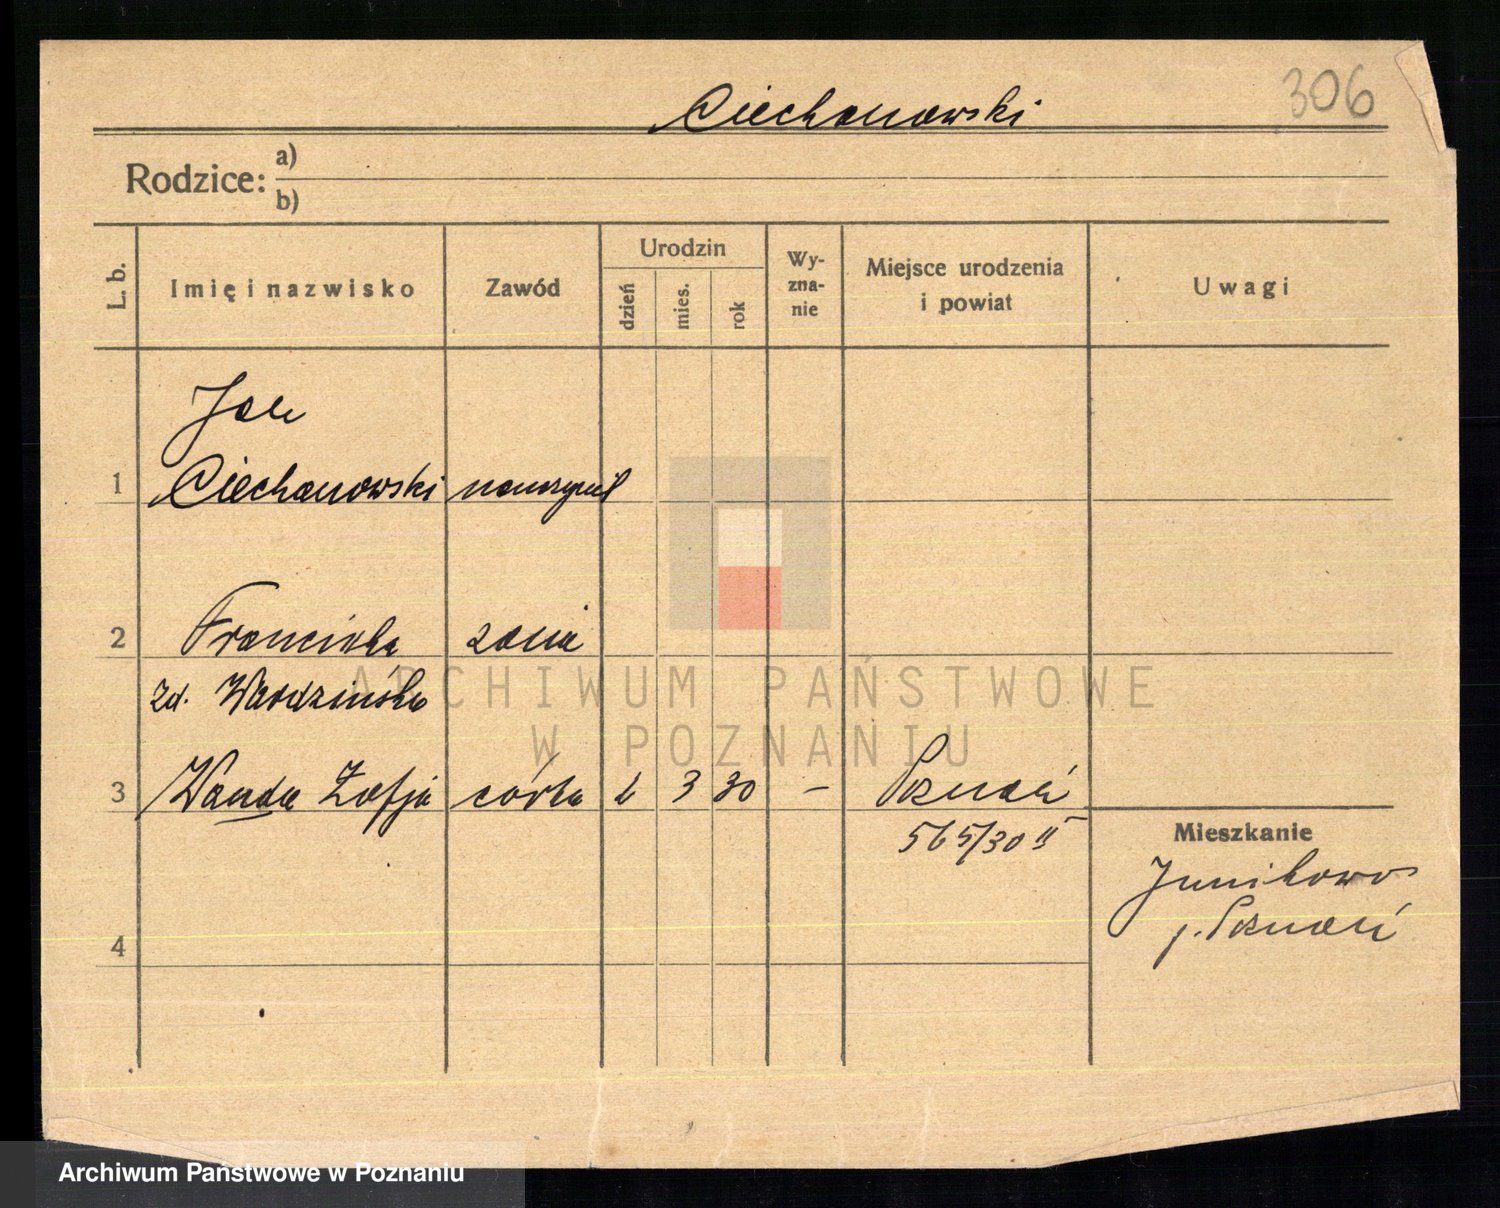 306
Ciechanowski
Rodzice: a)
b)
L. b.
Imię i nazwisko
Zawód
Urodzin
dzień
mies.
rok
Wy-
zna-
nie
Miejsce urodzenia
i powiat
Uwagi
Jan
1 Ciechanowski nauczyciel
2 Franciszka żona
zd. Wardzińska
3 Wanda Zofja córka 2 3 30 – Poznań
565/30 II
Mieszkanie
Junikowo
p. Poznań
4
ARCHIWUM PAŃSTWOWE
W POZNANIU
Archiwum Państwowe w Poznaniu